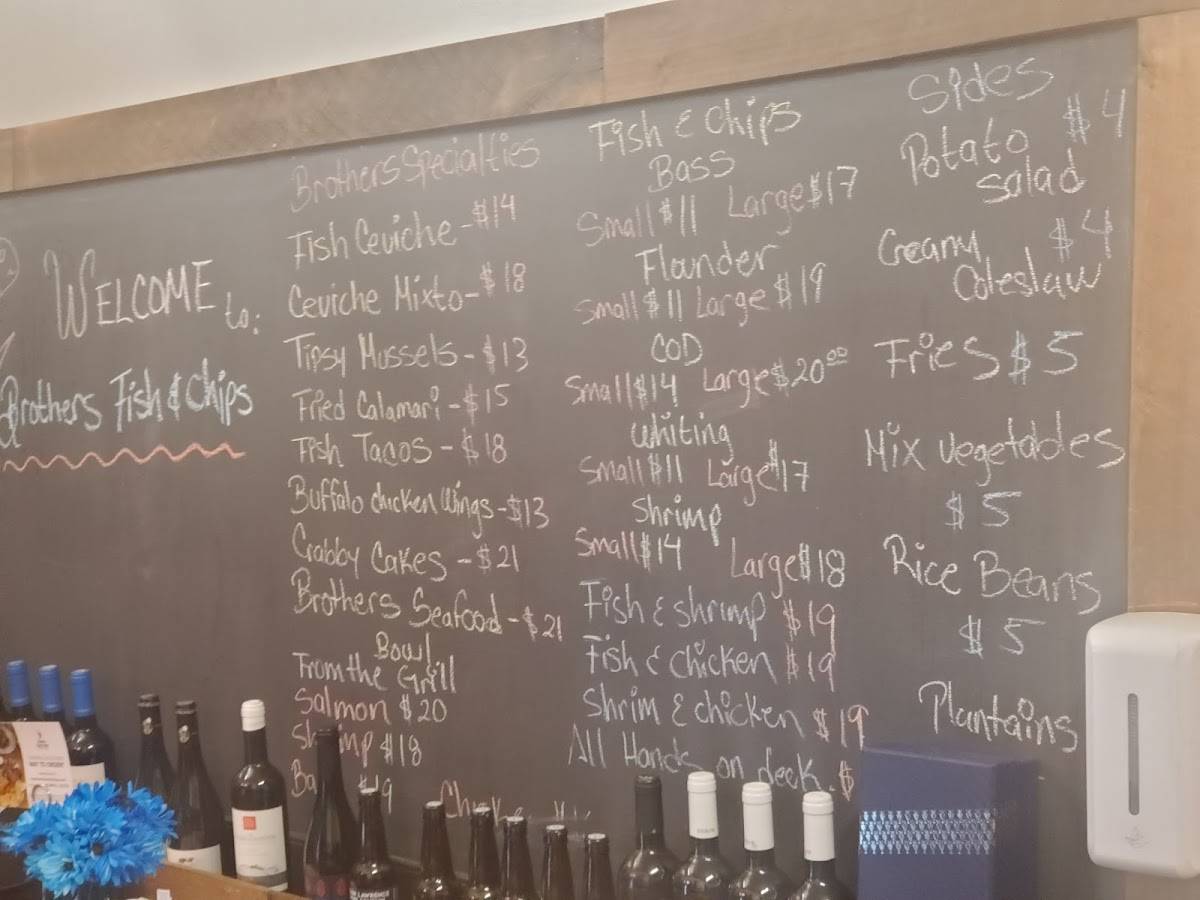 WELCOME
to:
Brothers Fish & Chips
Brothers Specialties
Fish Ceviche - $14
Ceviche Mixto - $18
Tipsy Mussels - $13
Fried Calamari - $15
Fish Tacos - $18
Buffalo chicken Wings - $13
Crabby Cakes - $21
Brothers Seafood - $21
Bowl
From the Grill
Salmon $20
$18
Fish & Chips
Bass
Small $11 Large $17
Flounder
Small $11 Large $19
COD
Small $14 Large $20.00
Whiting
Small $11 Large $17
Shrimp
Small $14 Large $18
Fish & shrimp $19
Fish & chicken $19
Shrim & chicken $19
All Hands on deck. $
Sides
Potato $4
Salad
Creamy $4
Coleslaw
Fries $5
Mix vegetables
$5
Rice Beans
$5
Plantains